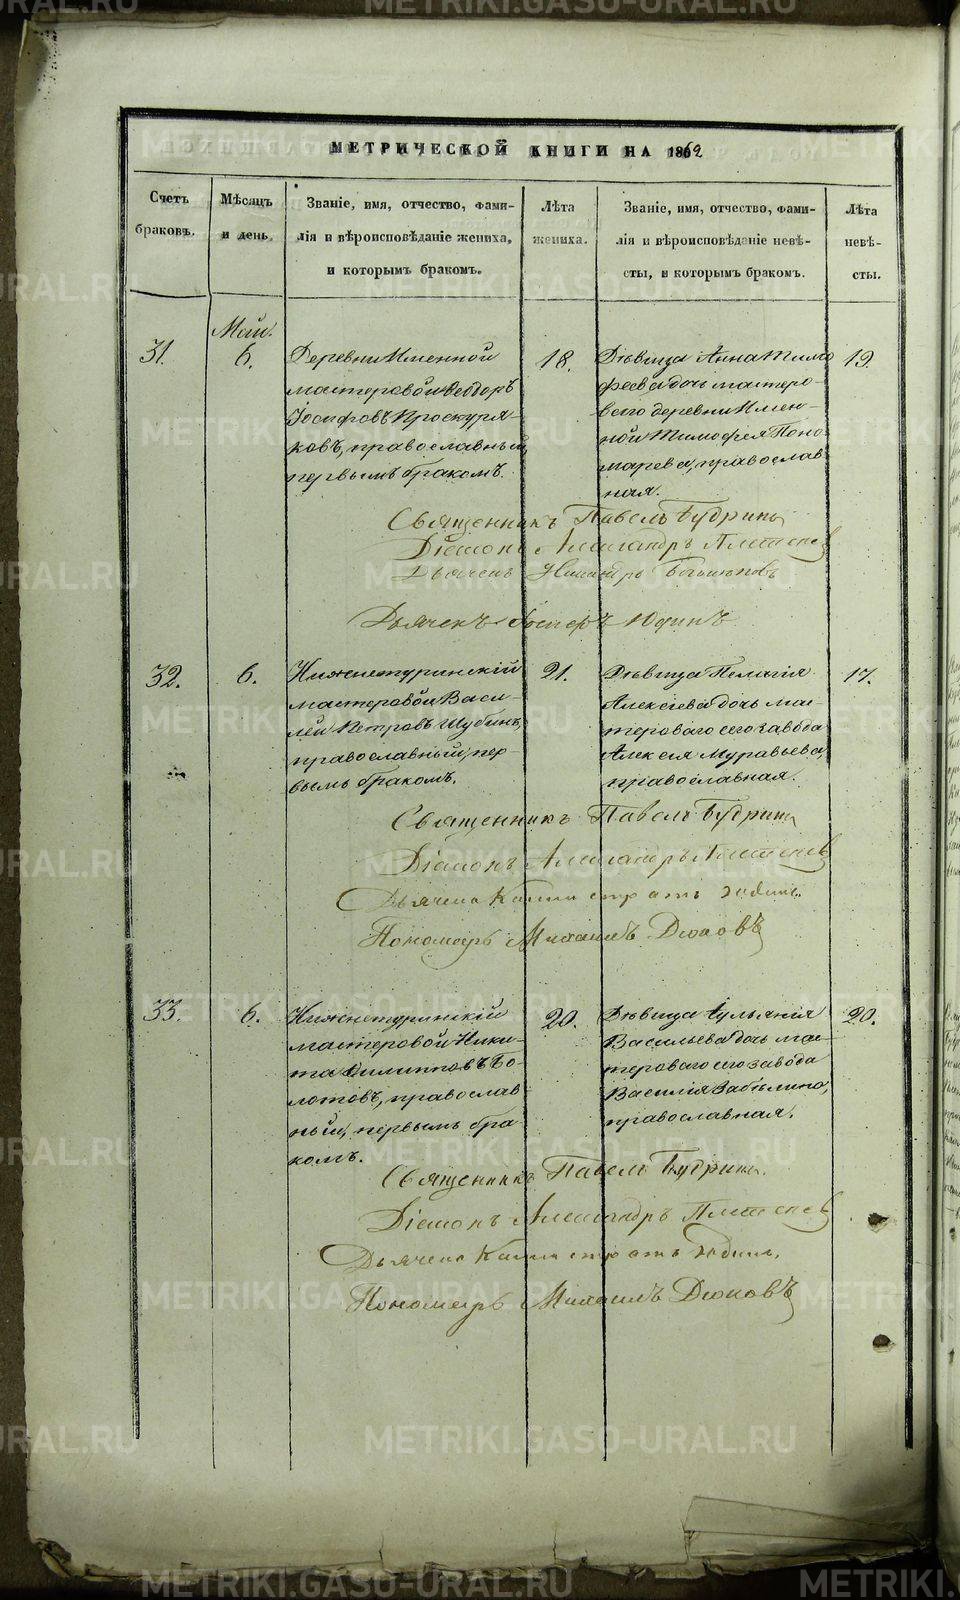 METRIKI.GASO-URAL.RU
МЕТРИЧЕСКОЙ КНИГИ НА 1862
Счетъ браковъ.
Мѣсяцъ и день.
Званіе, имя, отчество, фами-
лія и вѣроисповѣданіе жениха,
и которымъ бракомъ.
Лѣта жениха.
Званіе, имя, отчество, фами-
лія и вѣроисповѣданіе невѣ-
сты, и которымъ бракомъ.
Лѣта невѣ-
сты.
31.
Май.
6.
Деревни Именной
мастеровой Ѳеодоръ
Іосифовъ Проскуря-
ковъ, православный,
первымъ бракомъ.
18.
Дѣвица Анна Тимо
феева дочь мастеро-
ваго деревни Имен-
ной Тимофея Поно-
марева, православ
ная.
19.
Священникъ Павелъ Будринъ
Діаконъ Александръ
Дьячекъ
Дьячекъ Юдинъ
32.
6.
Нижнетуринскій
мастеровой Васи-
лій Петровъ Шубинъ,
православный, пер-
вымъ бракомъ.
21.
Дѣвица Пелагія
Алексіева дочь мас-
тероваго сего завода
Алексія Муравьева,
православная.
17.
Священникъ Павелъ Будринъ
Діаконъ Александръ
Дьячекъ Калистратъ Юдинъ.
Пономарь Михаилъ Дюковъ
33.
6.
Нижнетуринскій
мастеровой Ники-
та Филипповъ Бо-
лотовъ, православ
ный, первымъ бра-
комъ.
20.
Дѣвица Іульянія
Васильева дочь мас-
тероваго сего завода
Василія Забѣлина,
православная.
20.
Священникъ Павелъ Будринъ.
Діаконъ Александръ
Дьячекъ Калистратъ Юдинъ.
Пономарь Михаилъ Дюковъ